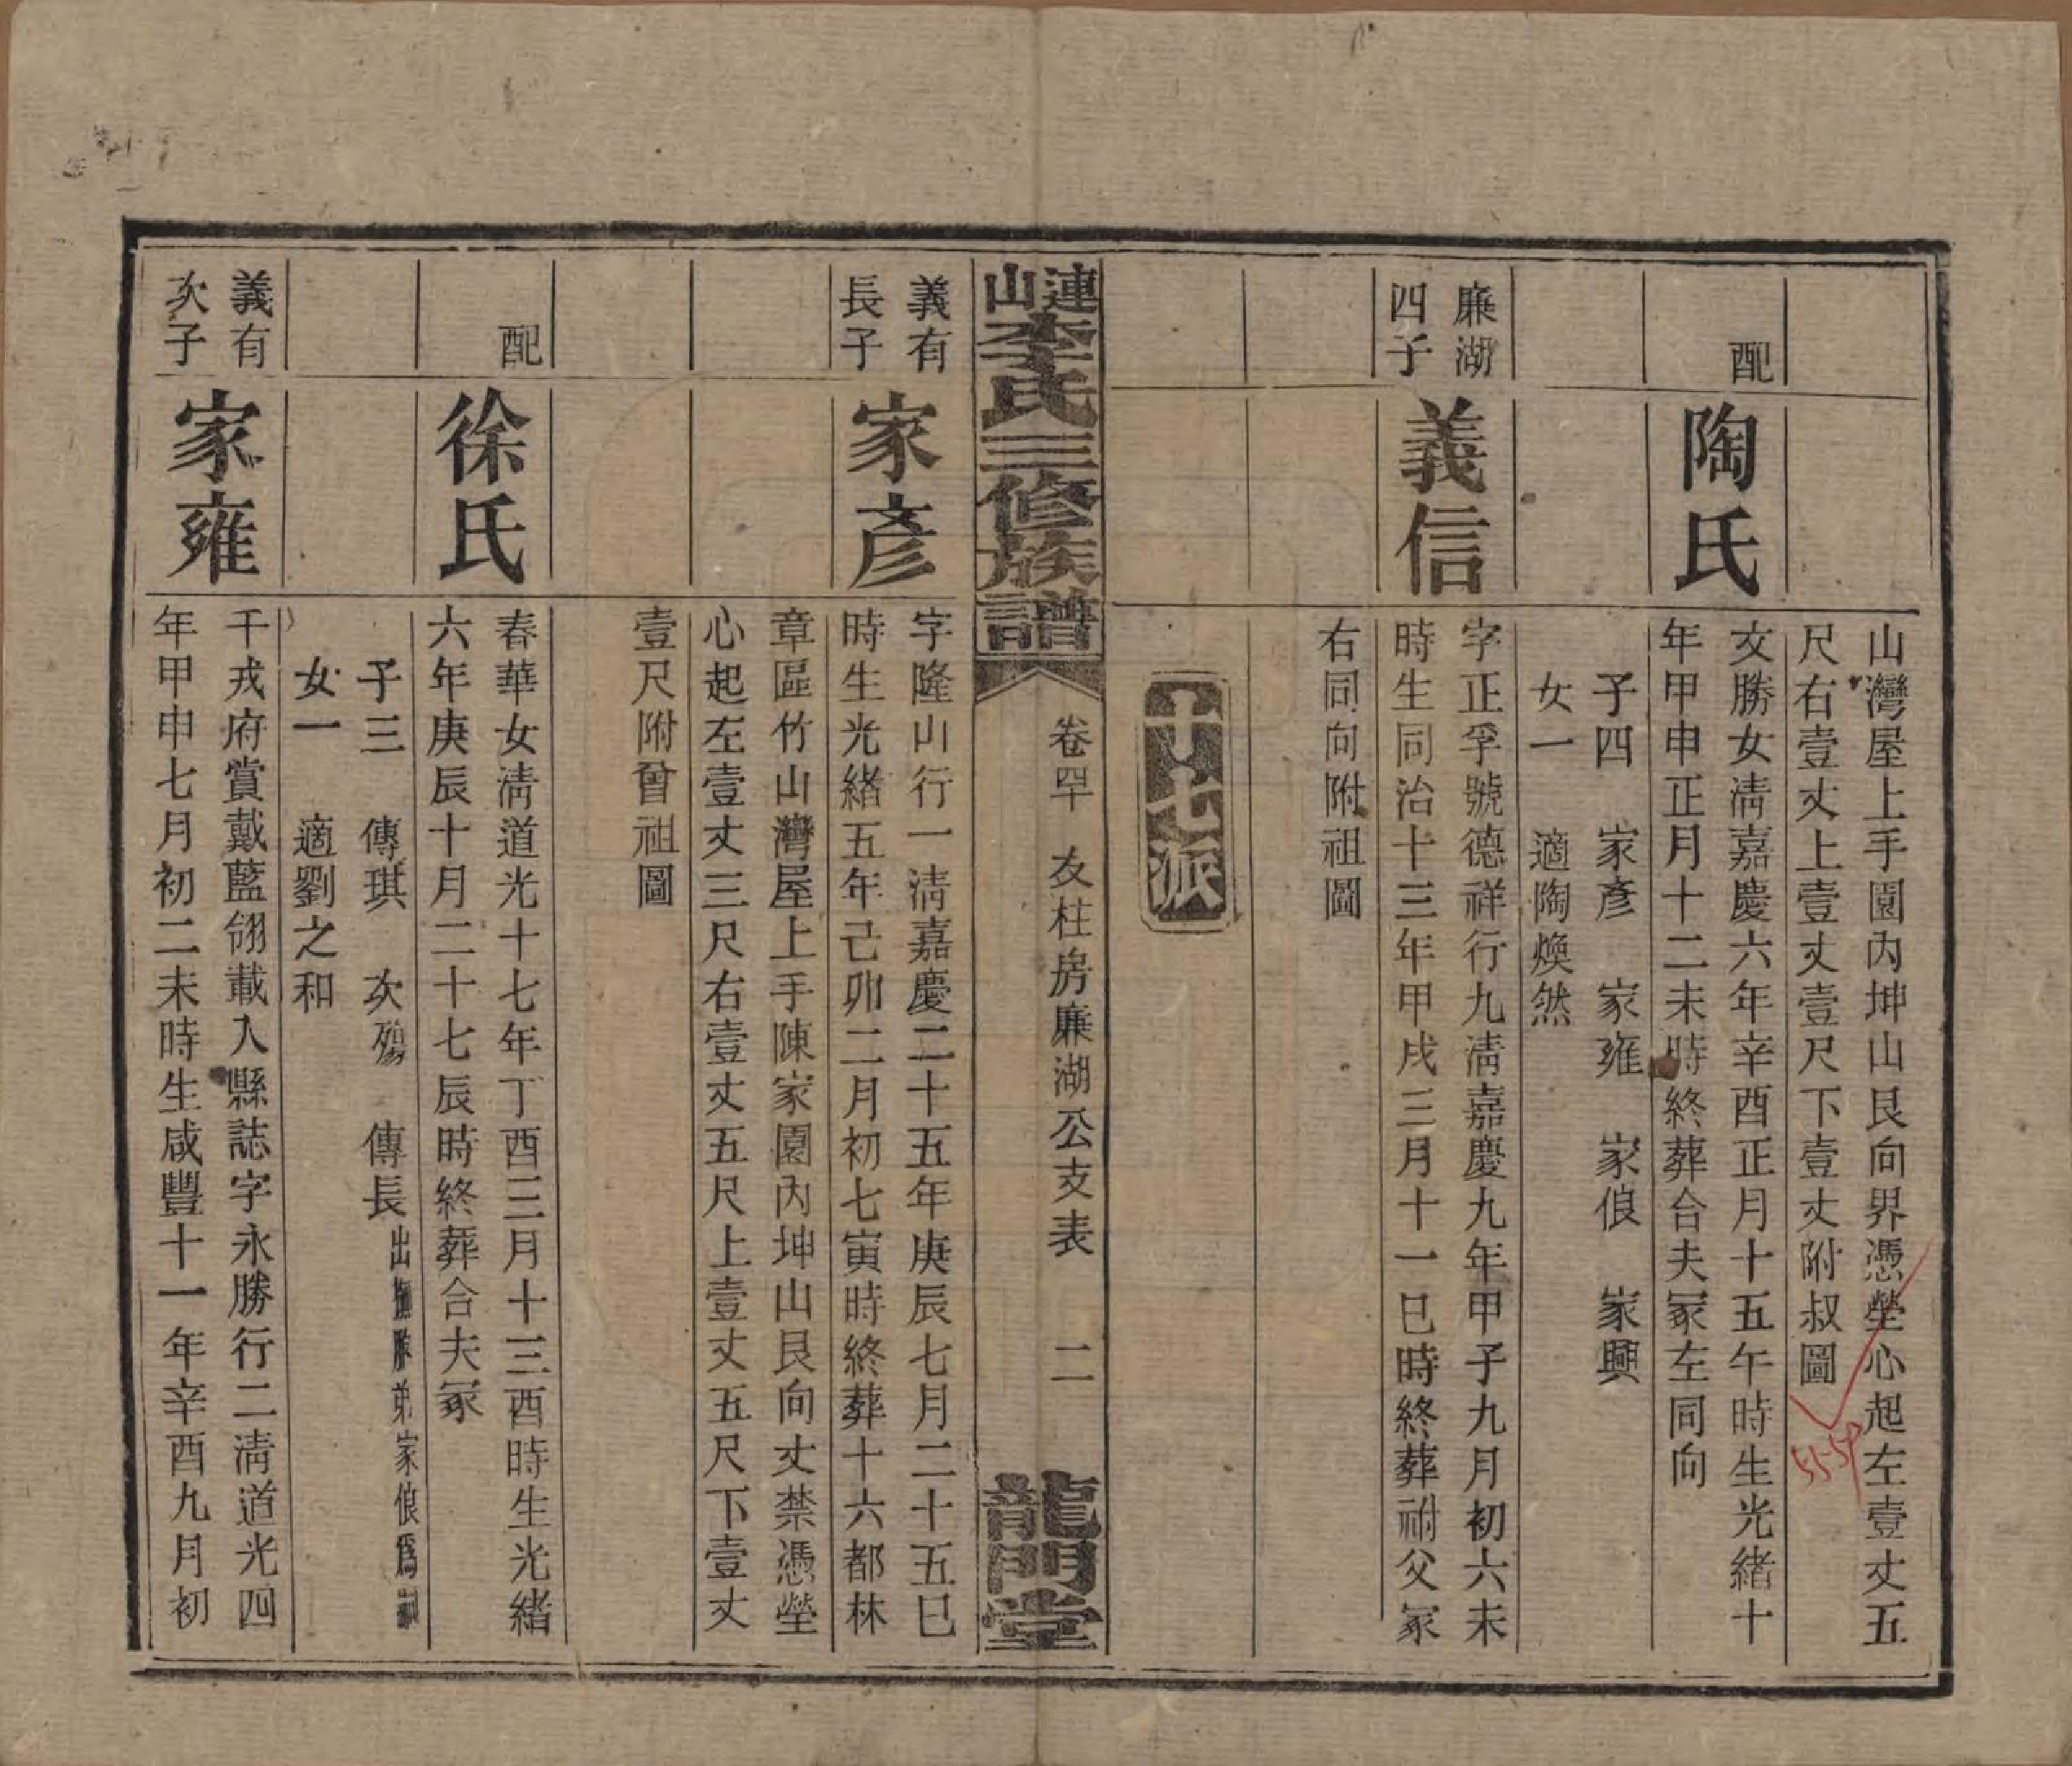 山灣屋上手園內坤山艮向界憑塋心起左壹丈五
尺右壹丈上壹丈壹尺下壹丈附叔圖
配
陶氏
文勝女淸嘉慶六年辛酉正月十五午時生光緖十
年甲申正月十二未時終葬合夫冢左同向
子四 家彥 家雍 家俍 家興
女一 適陶煥然
廉湖
四子
義信
字正孚號德祥行九淸嘉慶九年甲子九月初六未
時生同治十三年甲戌三月十一巳時終葬祔父冢
右同向附祖圖
十七派
連山李氏三修族譜
卷四十 友柱房廉湖公支表 二
龍門堂
義有
長子
家彥
字隆山行一淸嘉慶二十五年庚辰七月二十五巳
時生光緖五年己卯二月初七寅時終葬十六都林
章區竹山灣屋上手陳家園內坤山艮向丈禁憑塋
心起左壹丈三尺右壹丈五尺上壹丈五尺下壹丈
壹尺附曾祖圖
配
徐氏
春華女淸道光十七年丁酉三月十三酉時生光緖
六年庚辰十月二十七辰時終葬合夫冢
子三 傳琪 次殤 傳長出撫胞弟家俍爲嗣
女一 適劉之和
義有
次子
家雍
千戎府賞戴藍翎載入縣誌字永勝行二淸道光四
年甲申七月初二未時生咸豐十一年辛酉九月初
55-59